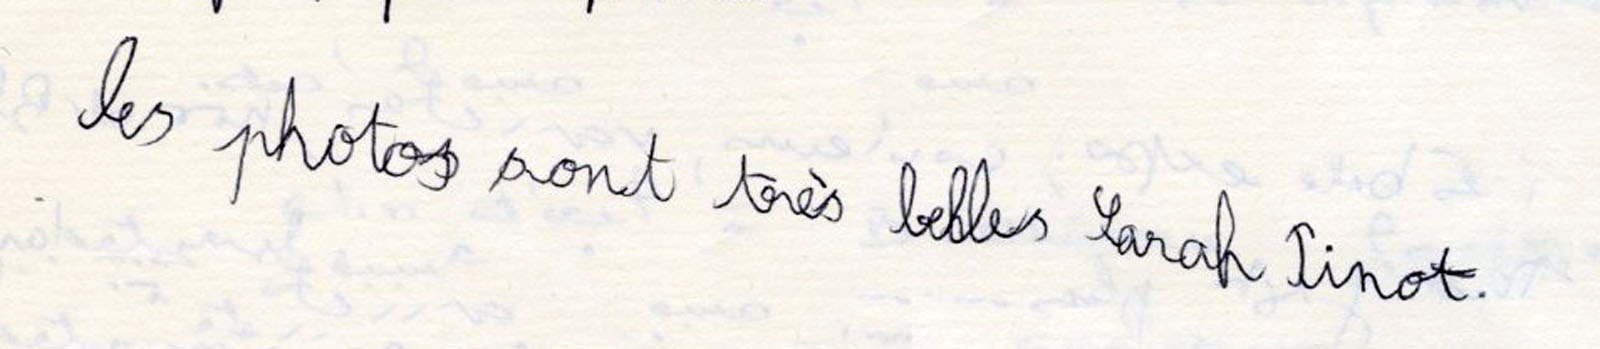 les photos sont très belles Sarah Tinot.